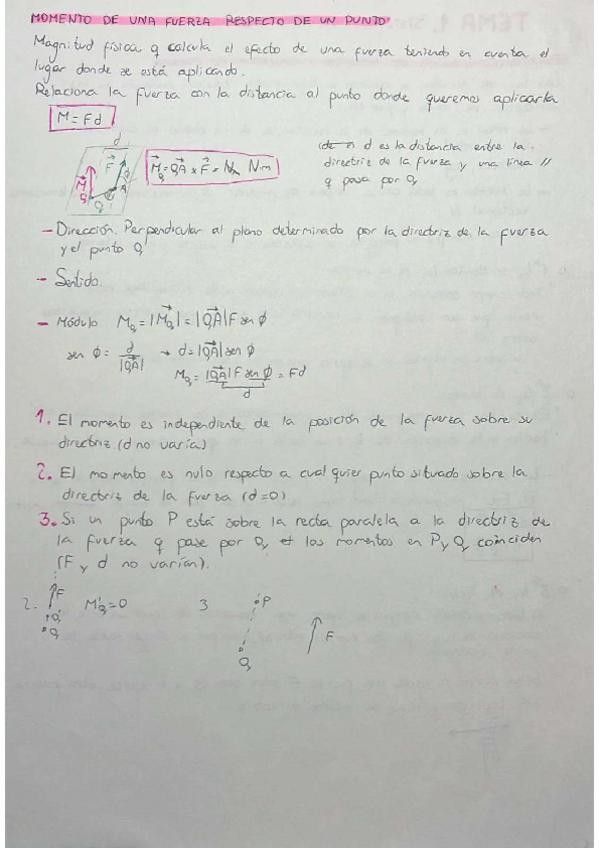 MOMENTO DE UNA FUERZA RESPECTO DE UN PUNTO
Magnitud física q calcula el efecto de una fuerza teniendo en cuenta el
lugar donde se está aplicando.
Relaciona la fuerza con la distancia al punto donde queremos aplicarla
M = Fd
d
F
M
Q
A
M_Q = QA x F = N Nm
d es la distancia entre la
directriz de la fuerza y una línea //
q pasa por Q
- Dirección. Perpendicular al plano determinado por la directriz de la fuerza
y el punto Q
- Sentido.
- Módulo M_Q = |M_Q| = |QA| F sen ϕ
sen ϕ = d/|QA| → d = |QA| sen ϕ
M_Q = |QA| F sen ϕ = Fd
d
1. El momento es independiente de la posición de la fuerza sobre su
directriz (d no varía)
2. El momento es nulo respecto a cualquier punto situado sobre la
directriz de la fuerza (d=0)
3. Si un punto P está sobre la recta paralela a la directriz de
la fuerza q pase por Q, los momentos en P y Q coinciden
(F y d no varían).
2. F Q' Q M'_Q = 0 3 P Q F